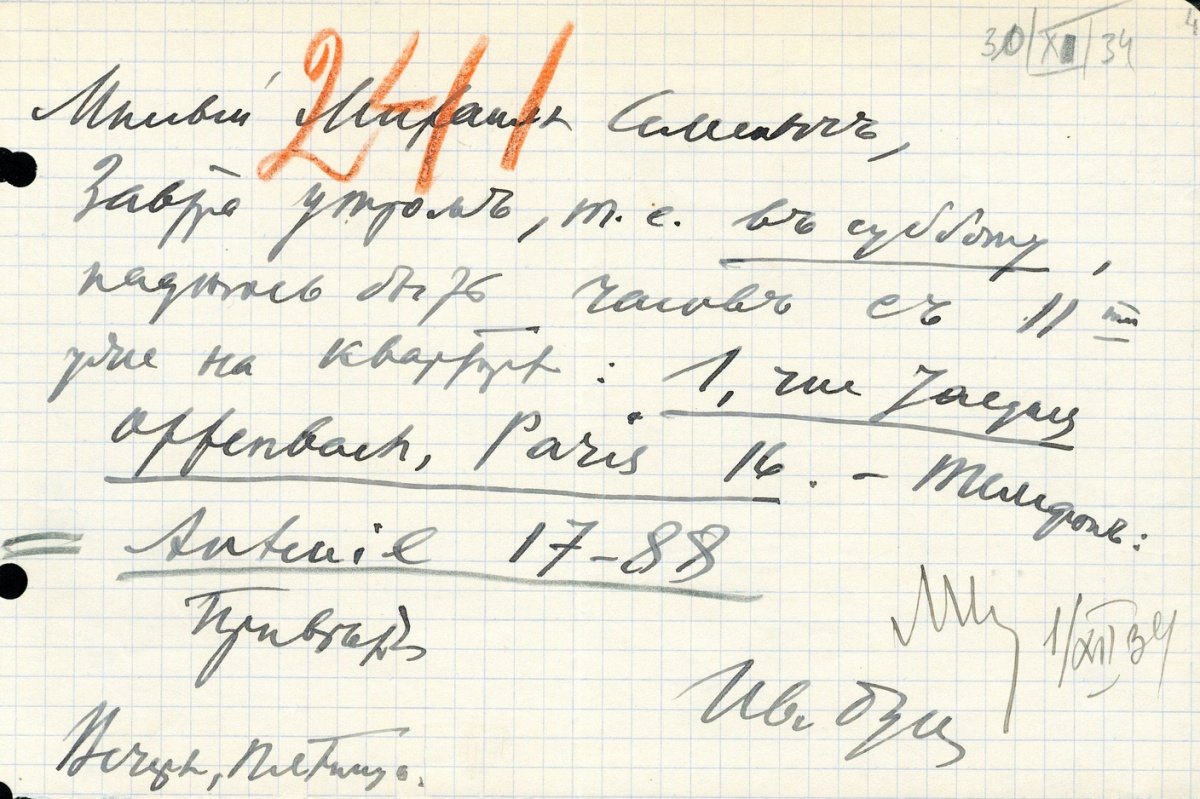 30/XI/34
4
241
Милый Миркинъ Семенычъ,
Завтра утромъ, т. е. въ субботу,
надѣюсь быть часовъ съ 11 ти
уже на квартирѣ: 1, rue Jacques
Offenbach, Paris 16. – Телефонъ:
Auteuil 17–88
Привѣтъ
Ив. Бун
1/XII 34
Вечеръ, пятница.